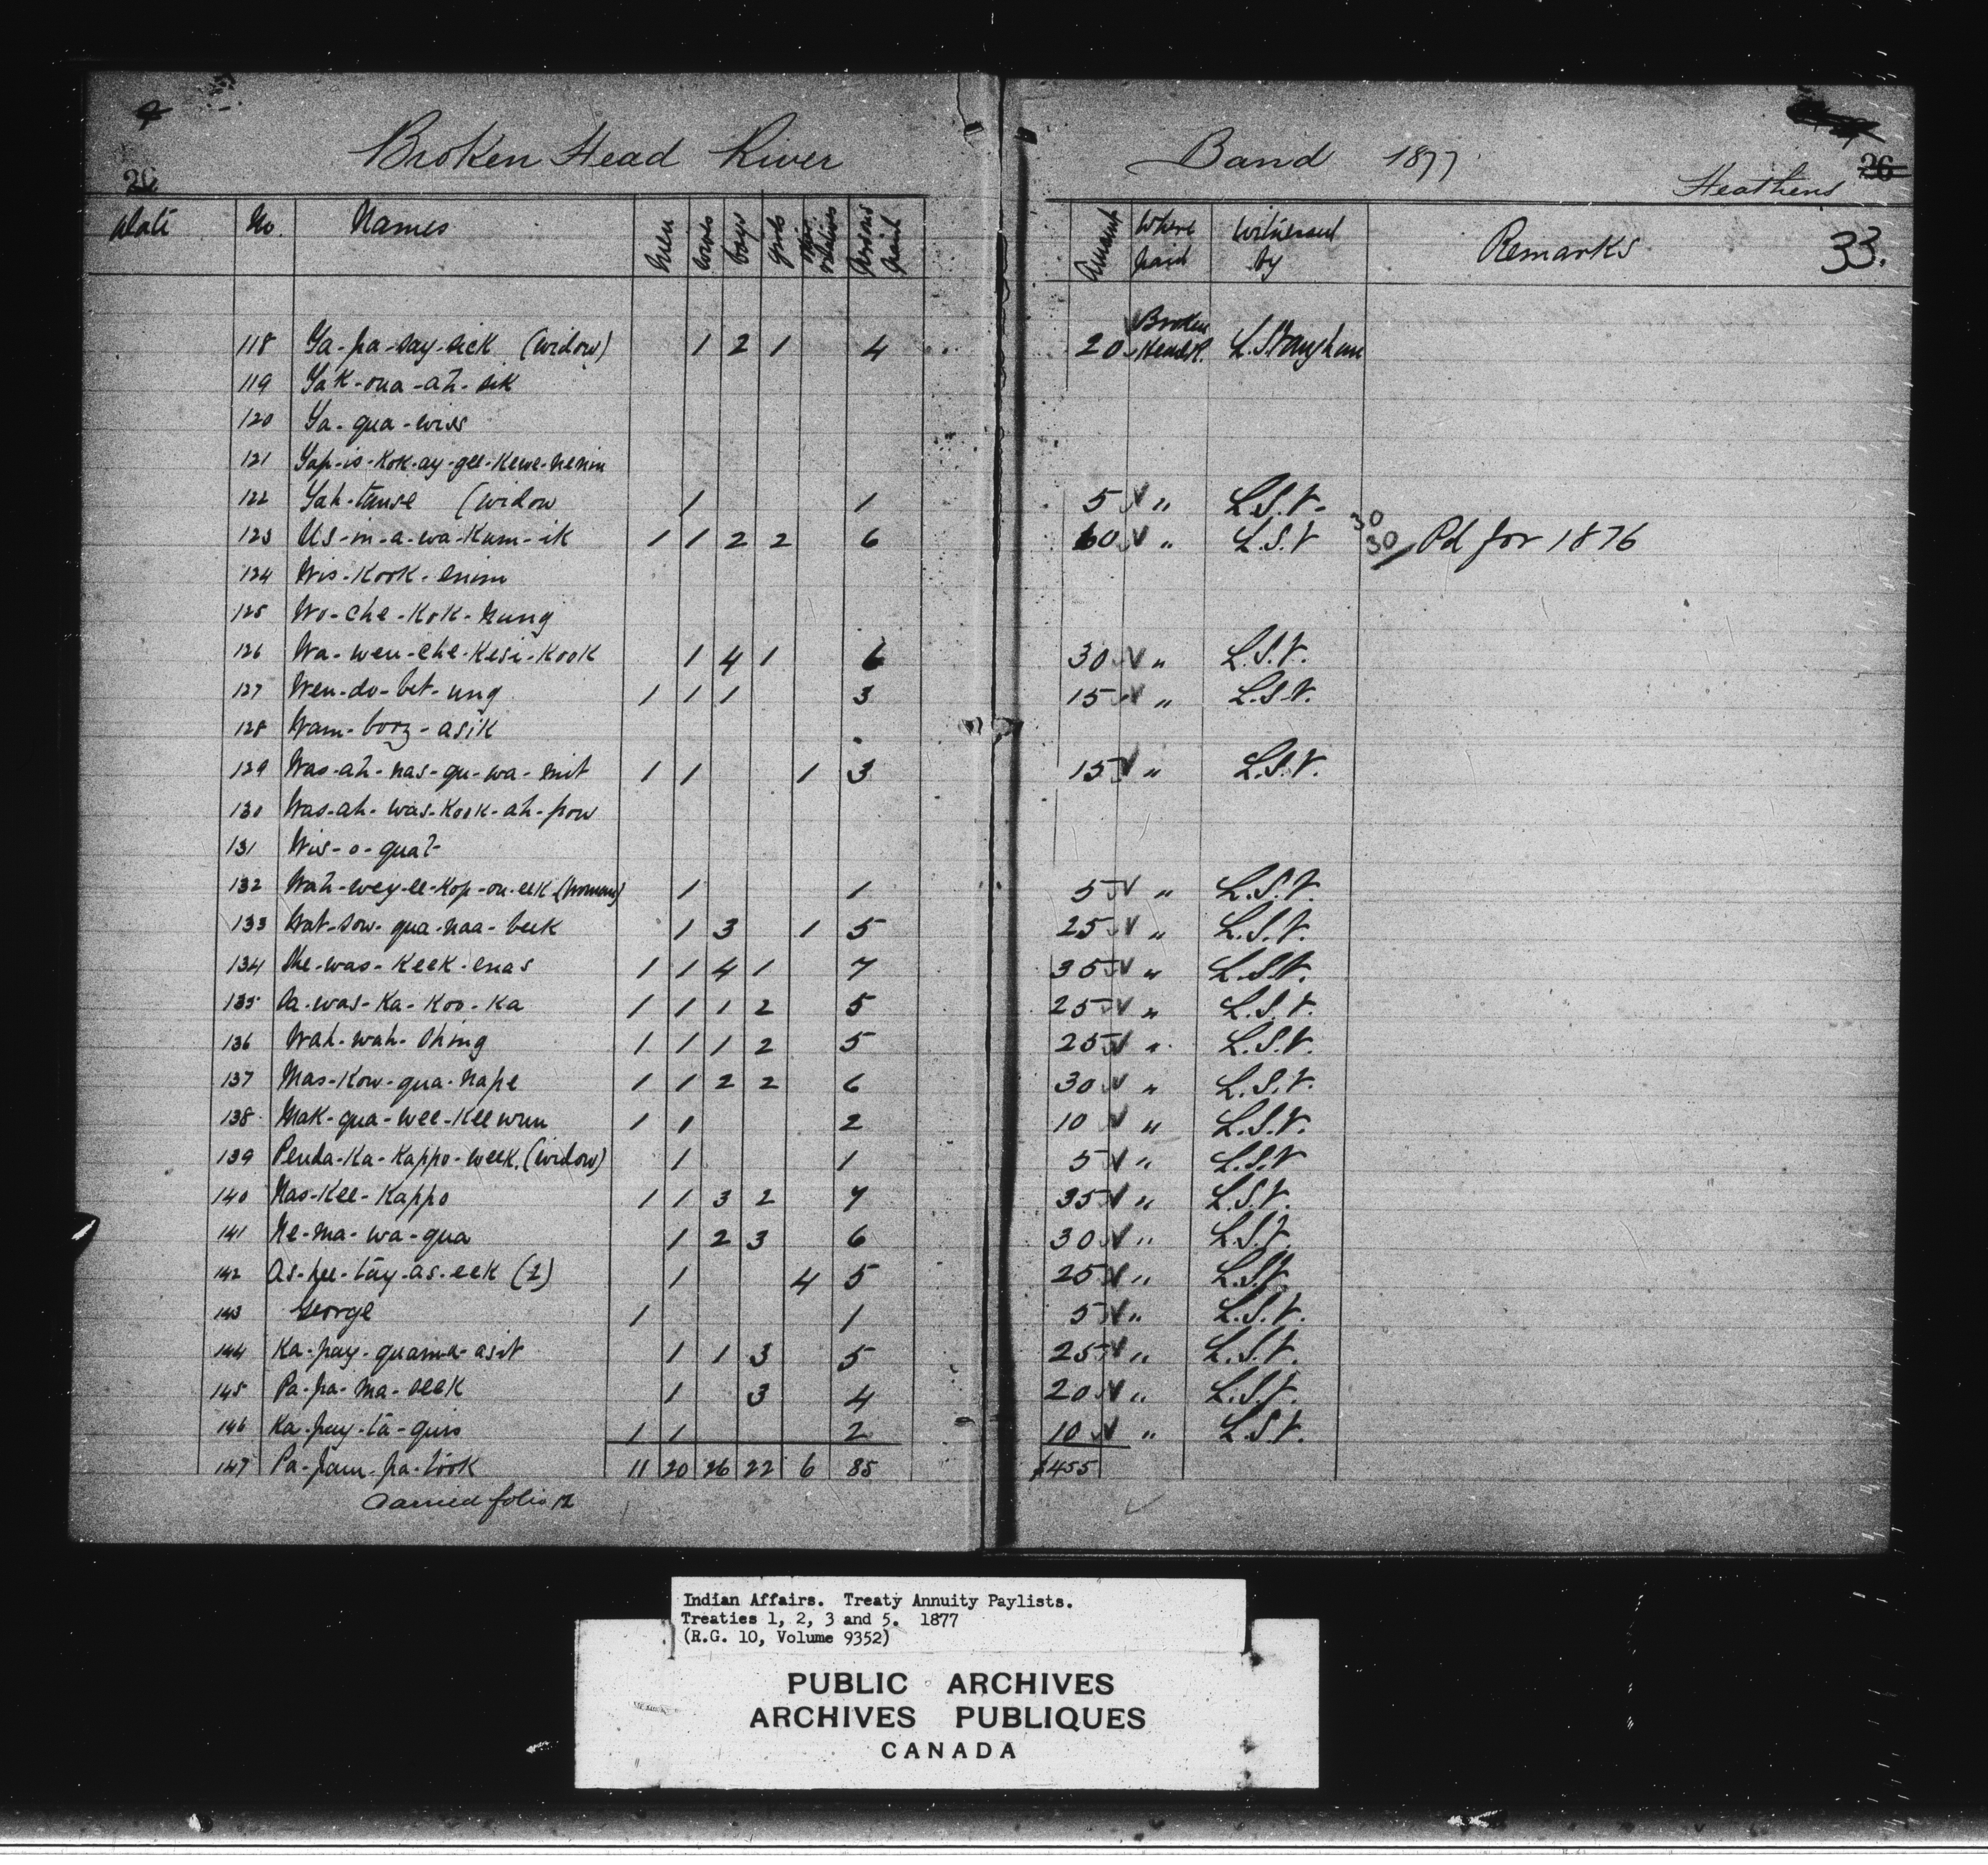 26
Broken Head River Band 1877
Heathens 26
Date No. Names Men Women boys girls other relatives Persons paid Amount Where paid Witnessed by Remarks 33.
118 Ya-pa-say-sick (widow) 1 2 1 4 20 Broken Head R. L.S. Vaughan
119 Yak-oua-ah-sik
120 Ya-qua-wiss
121 Yap-is-kok-ay-gee-kewe-nenin
122 Yah-tause (widow 1 1 5 " L.S.V.
123 Us-in-a-wa-kum-ik 1 1 2 2 6 60 " L.S.V 30 30 Pd for 1876
124 Wis-kook-enim
125 Wo-che-kok-nung
126 Wa-wen-che-kesi-kook 1 4 1 6 30 " L.S.V.
127 Wen-do-bet-ung 1 1 1 3 15 " L.S.V.
128 Wam-booz-asik
129 Was-ah-nas-qu-wa-nit 1 1 1 3 15 " L.S.V.
130 Was-ah-was-kook-ah-pow
131 Wis-o-quat
132 Wah-wey-ee-kop-ou-eek (Woman) 1 1 5 " L.S.V.
133 Wat-sow-qua-naa-beek 1 3 1 5 25 " L.S.V.
134 She-was-keek-enas 1 1 4 1 7 35 " L.S.V.
135 Sa-was-ka-koo-ka 1 1 1 2 5 25 " L.S.V.
136 Wah-wah-shing 1 1 1 2 5 25 " L.S.V.
137 Mas-kow-qua-nape 1 1 2 2 6 30 " L.S.V.
138 Mak-qua-wee-kee wun 1 1 2 10 " L.S.V.
139 Penda-ka-kappo-week. (widow) 1 1 5 " L.S.V
140 Nas-kee-kappo 1 1 3 2 7 35 " L.S.V.
141 Ne-ma-wa-qua 1 2 3 6 30 " L.S.V.
142 As-pee-tay-as-eek (2) 1 4 5 25 " L.S.V.
143 George 1 1 5 " L.S.V.
144 Ka-pay-quama-asit 1 1 3 5 25 " L.S.V.
145 Pa-pa-ma-seek 1 3 4 20 " L.S.V.
146 Ka-pay-ta-quis 1 1 2 10 " L.S.V.
147 Pa-pam-pa-took 11 20 26 22 6 85 $455
Carried folio 12
Indian Affairs. Treaty Annuity Paylists.
Treaties 1, 2, 3 and 5. 1877
(R.G. 10, Volume 9352)
PUBLIC ARCHIVES
ARCHIVES PUBLIQUES
CANADA